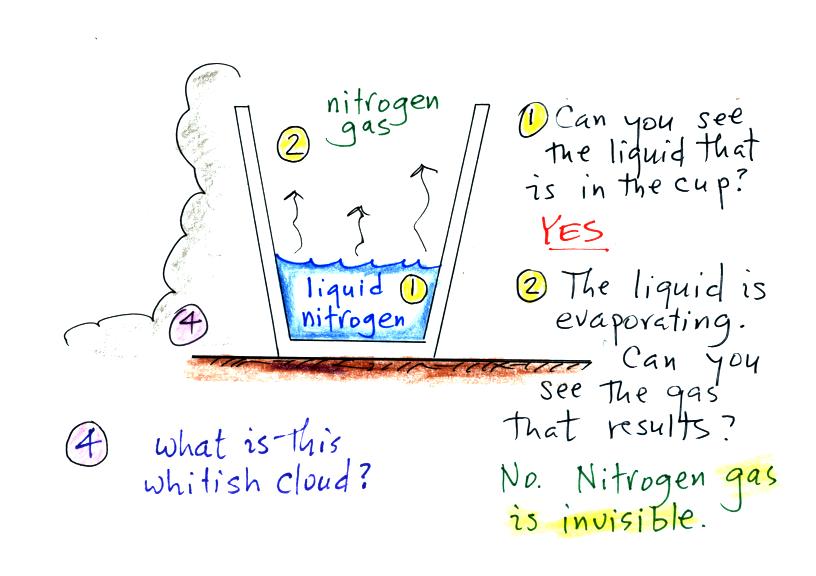 nitrogen
gas
2
liquid 1
nitrogen
4
1 Can you see
the liquid that
is in the cup?
YES
2 The liquid is
evaporating.
Can you
see the gas
that results?
No. Nitrogen gas
is invisible.
4 what is this
whitish cloud?